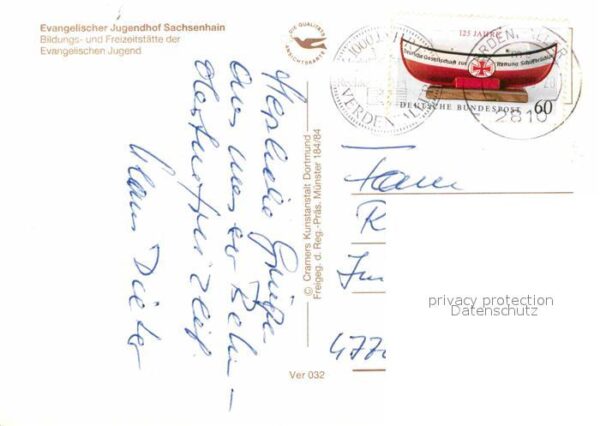 Evangelischer Jugendhof Sachsenhain
Bildungs- und Freizeitstätte der
Evangelischen Jugend
DIE QUALITÄTS
ANSICHTSKARTE
Herzliche Grüße
aus unserer
Klaus Dieter
© Cramers Kunstanstalt Dortmund
Freigeg. d. Reg.-Präs. Münster 184/84
Ver 032
125 JAHRE
Deutsche Gesellschaft zur Rettung Schiffbrüchiger
DEUTSCHE BUNDESPOST 60
VERDEN
2810
Fam
477
privacy protection
Datenschutz